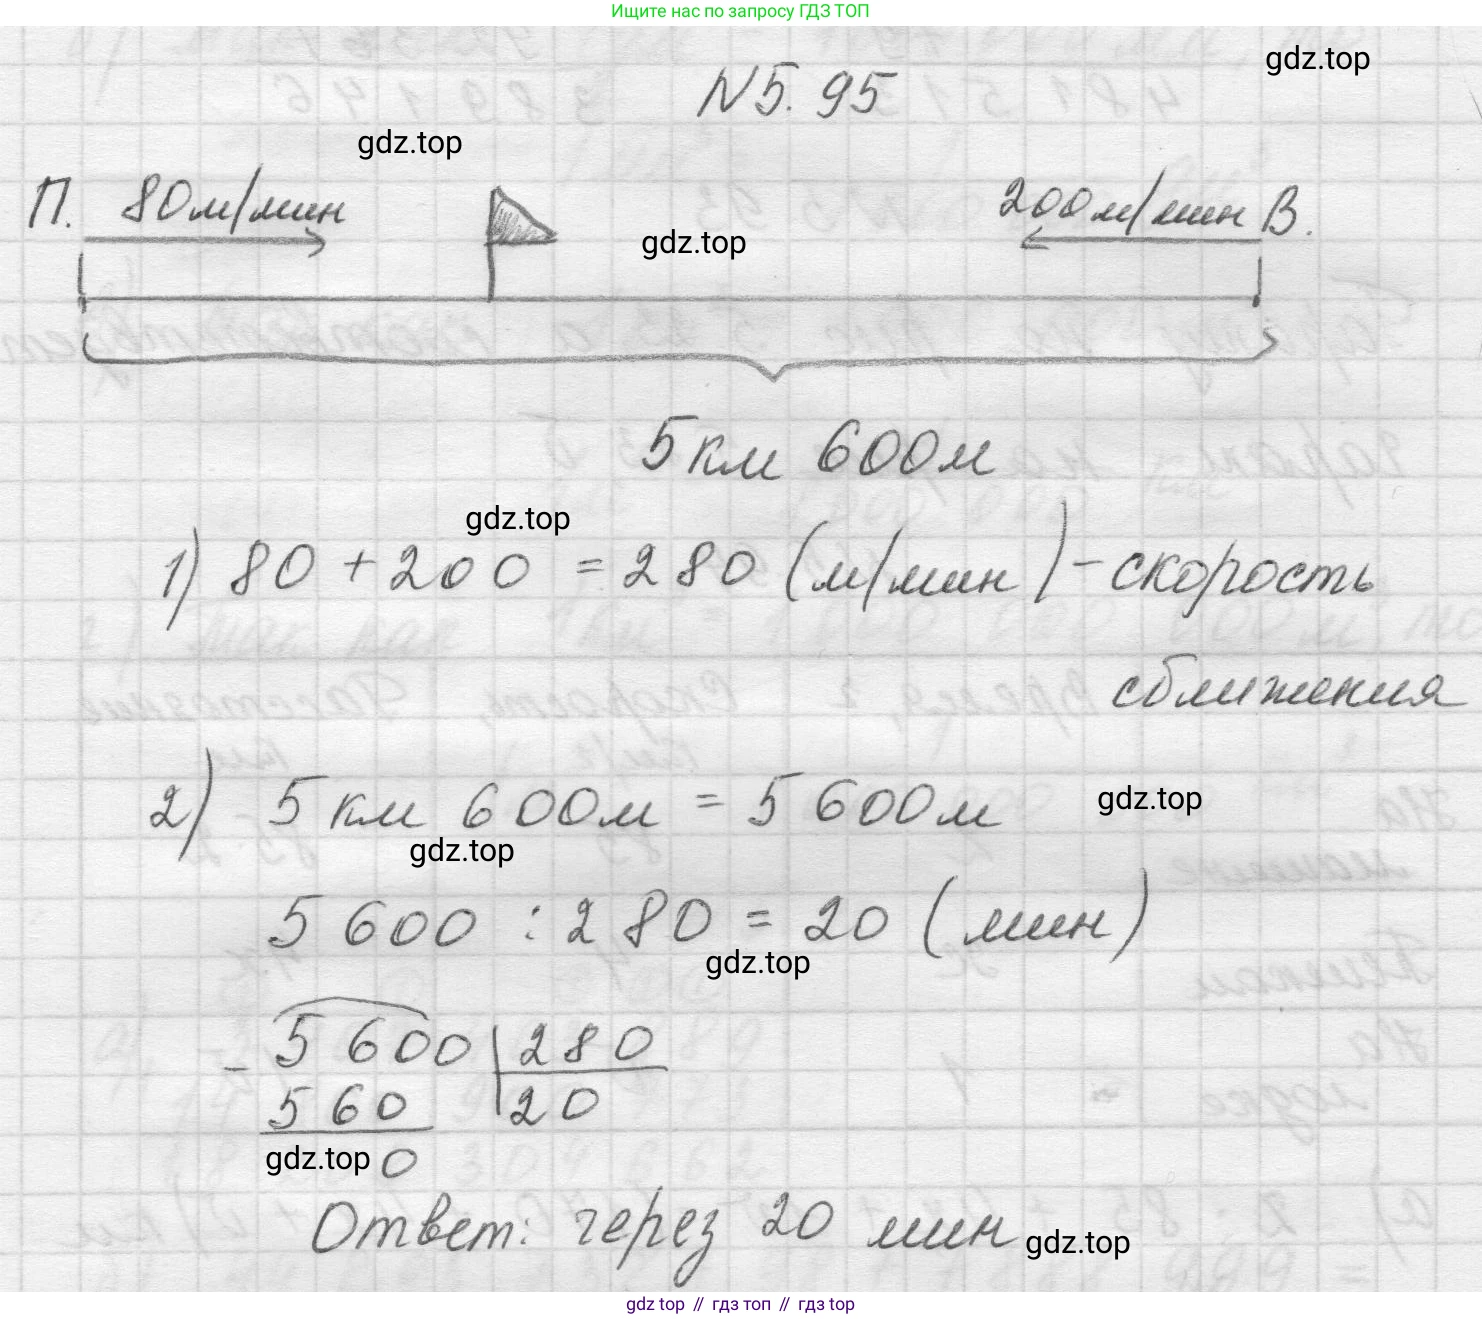 Ищите нас по запросу ГДЗ ТОП
gdz.top
N5.95
gdz.top
П. 80м/мин 200м/мин В.
gdz.top
5км 600м
gdz.top
1) 80 + 200 = 280 (м/мин) - скорость
сближения
2) 5 км 600м = 5 600м
gdz.top
gdz.top
5 600 : 280 = 20 (мин)
gdz.top
- 5 600 | 280
5 60 20
gdz.top 0
Ответ: через 20 мин
gdz.top
gdz top // гдз топ // гдз top